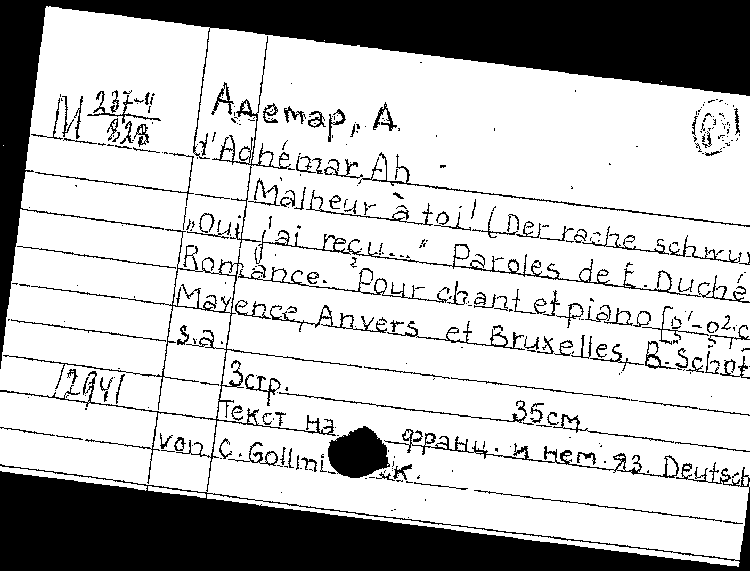 М 237-4/828
Адемар, А.
83
d'Adhémar, Ab
Malheur à toi! (Der rache schwur
„Oui j'ai reçu..." Paroles de E. Duché
Romance. Pour chant et piano [d'-d²;
Mayence, Anvers et Bruxelles, B. Schot
s.a.
3стр. 35см
12941
Текст на франц. и нем. яз. Deutsch
von C. Gollmi ck.